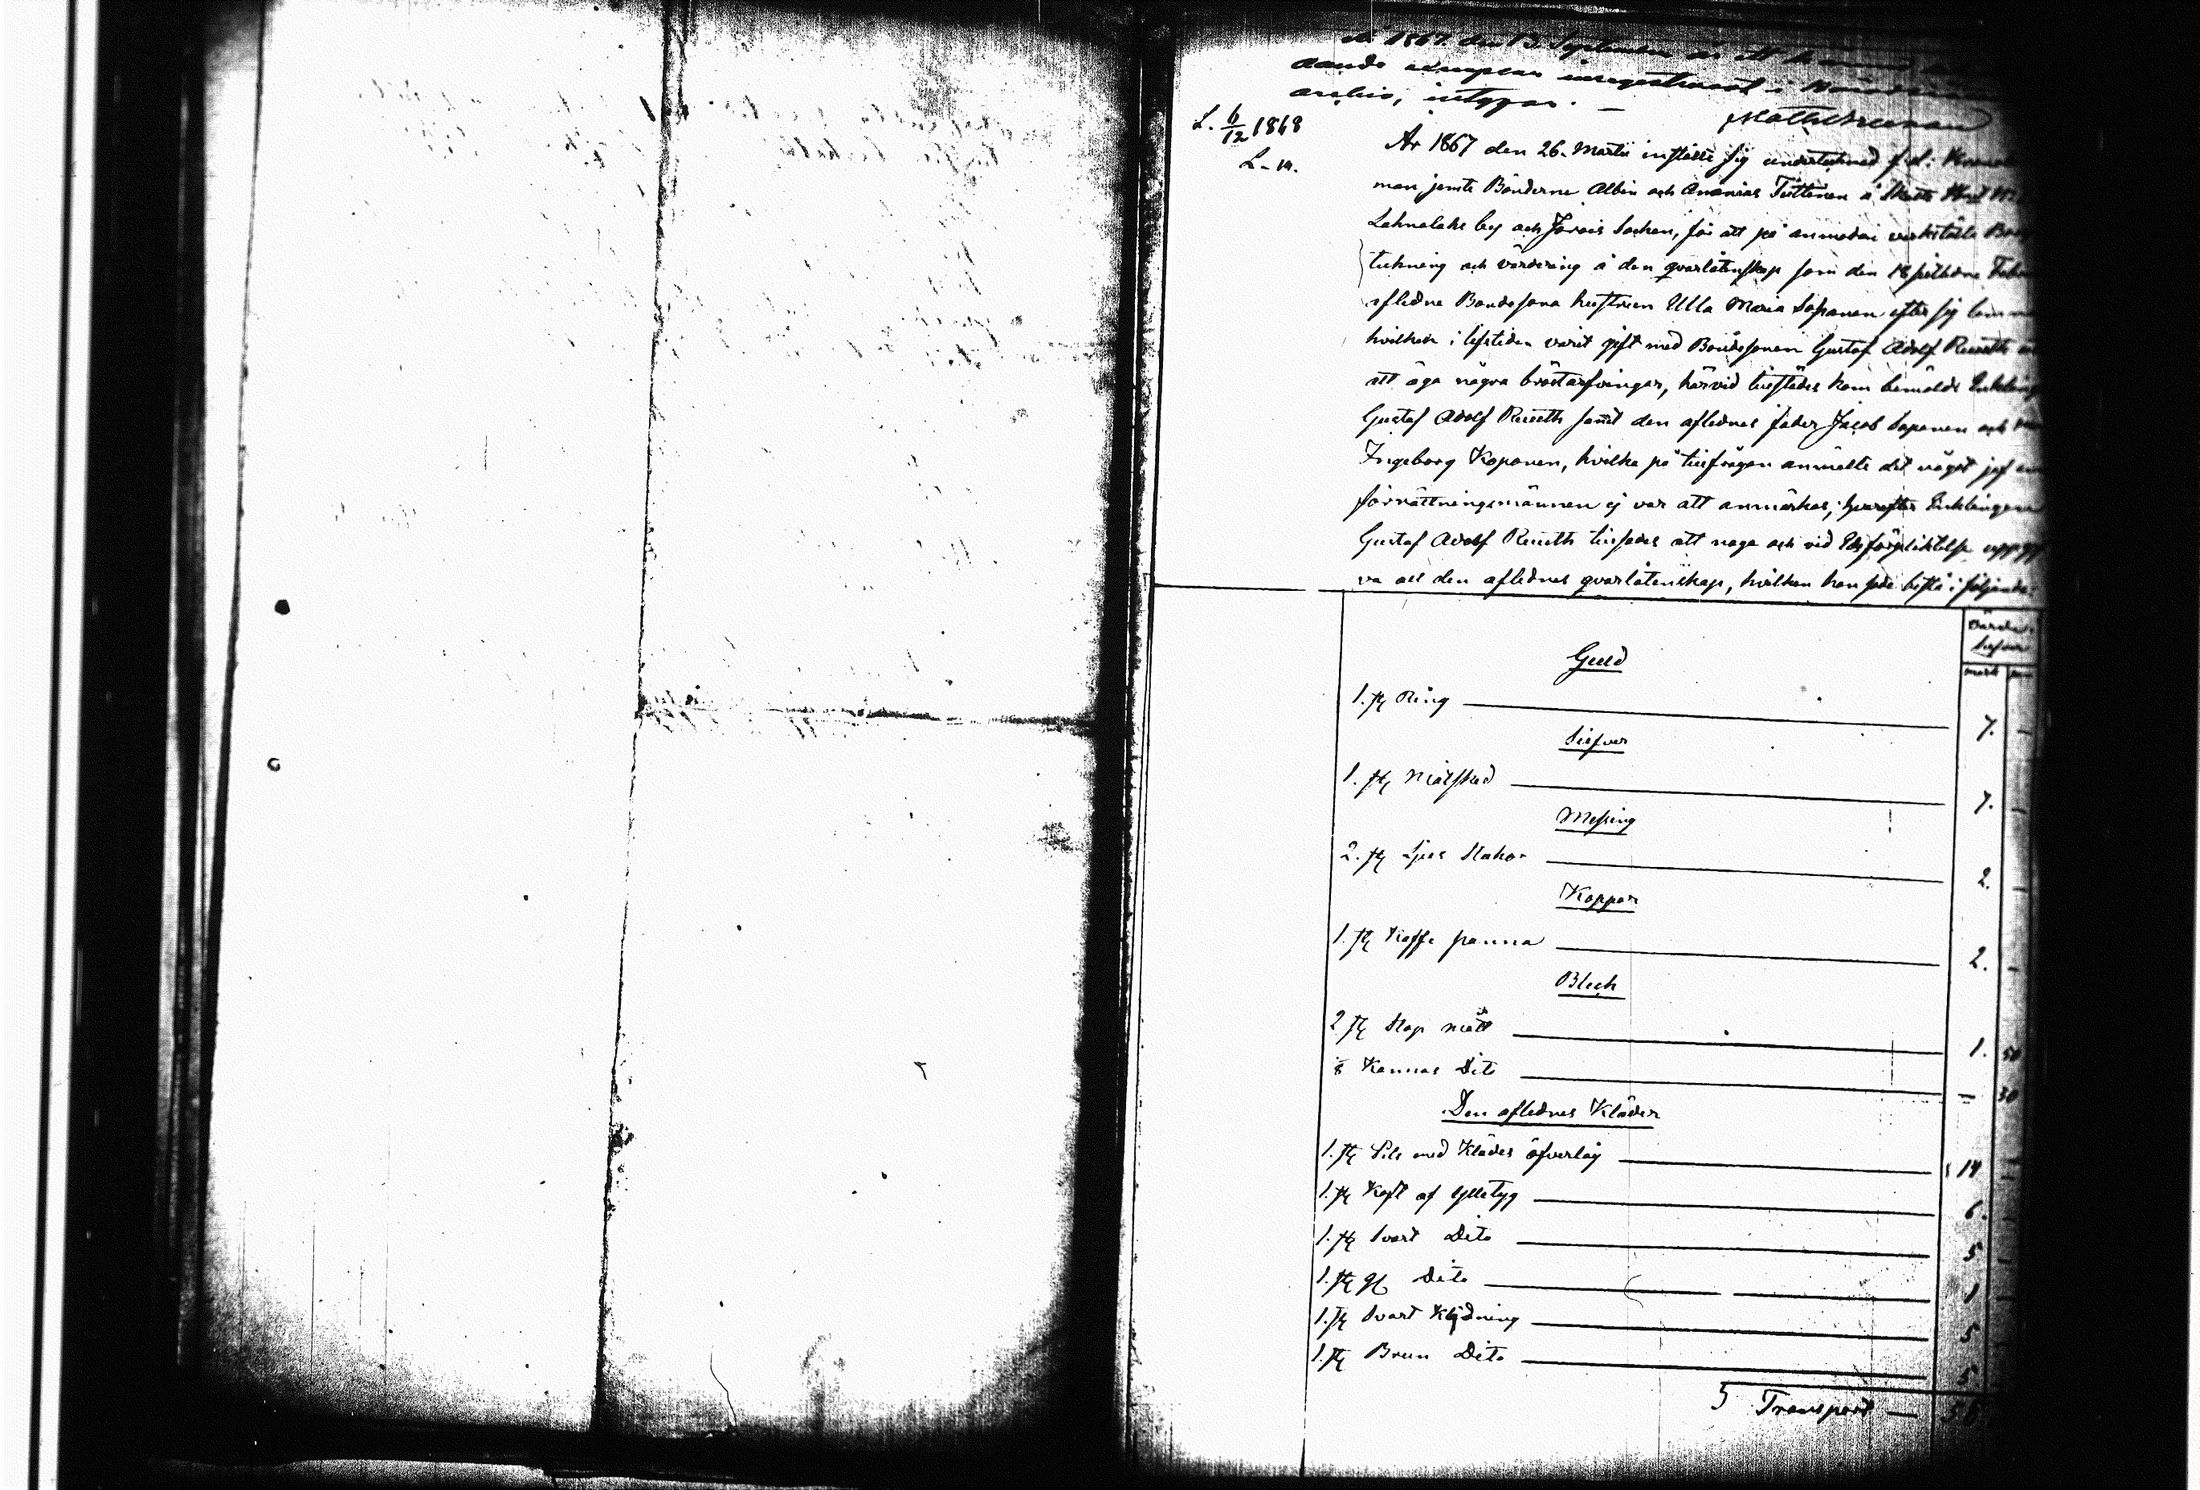 År 1867 den 13 September är ett
exemplar inregistreradt i
archiv, intygar. —
L. 6/12 1868
L - 14.
År 1867 den 26. Martii instälte sig undertecknad f. d.
man jemte Bönderne Albin och Ananias Tuttinen å Skatte
Lahnalaks by och Jorois Socken, för att på anmodan verkställa
teckning och värdering å den qvarlåtenskap som den 18 sistledne
afledne Bondesona hustrun Ulla Maria Sapanen efter sig
hvilken i lifstiden varit gift med Bondesonen Gustaf Adolf Reuuth
att äga några bröstarfvingar, härvid tillstädes kom bemälde Enklingen
Gustaf Adolf Reuuth samt den aflednes fader Jacob Sapanen och
Ingeborg Koponen, hvilke på tillfrågan anmälte det något jäf
förrättningsmännen ej var att anmärkas; hvarefter Enklingen
Gustaf Adolf Reuuth tillsades att noga och vid Edsförpliktelse uppgif
va all den aflednes qvarlåtenskap, hvilken han sade bestå i följande:
Guld
1. st Ring — 7. —
Silfver
1. st Matsked — 7. —
Messing
2. st Ljus Stakar — 2. —
Koppar
1. st Kaffe panna — 2. —
Blech
2 st Stop mått — 1. 50
Kannas Dito — 30
Den aflednes Kläder
1. st Pels med Klädes öfverlag — 14 —
1. st Koft af ylletyg — 6. —
1. st Svart Dito — 5 —
1. st Dito — 1 —
1. st Svart Klädning — 5
1. st Brun Dito — 5.
Transport —